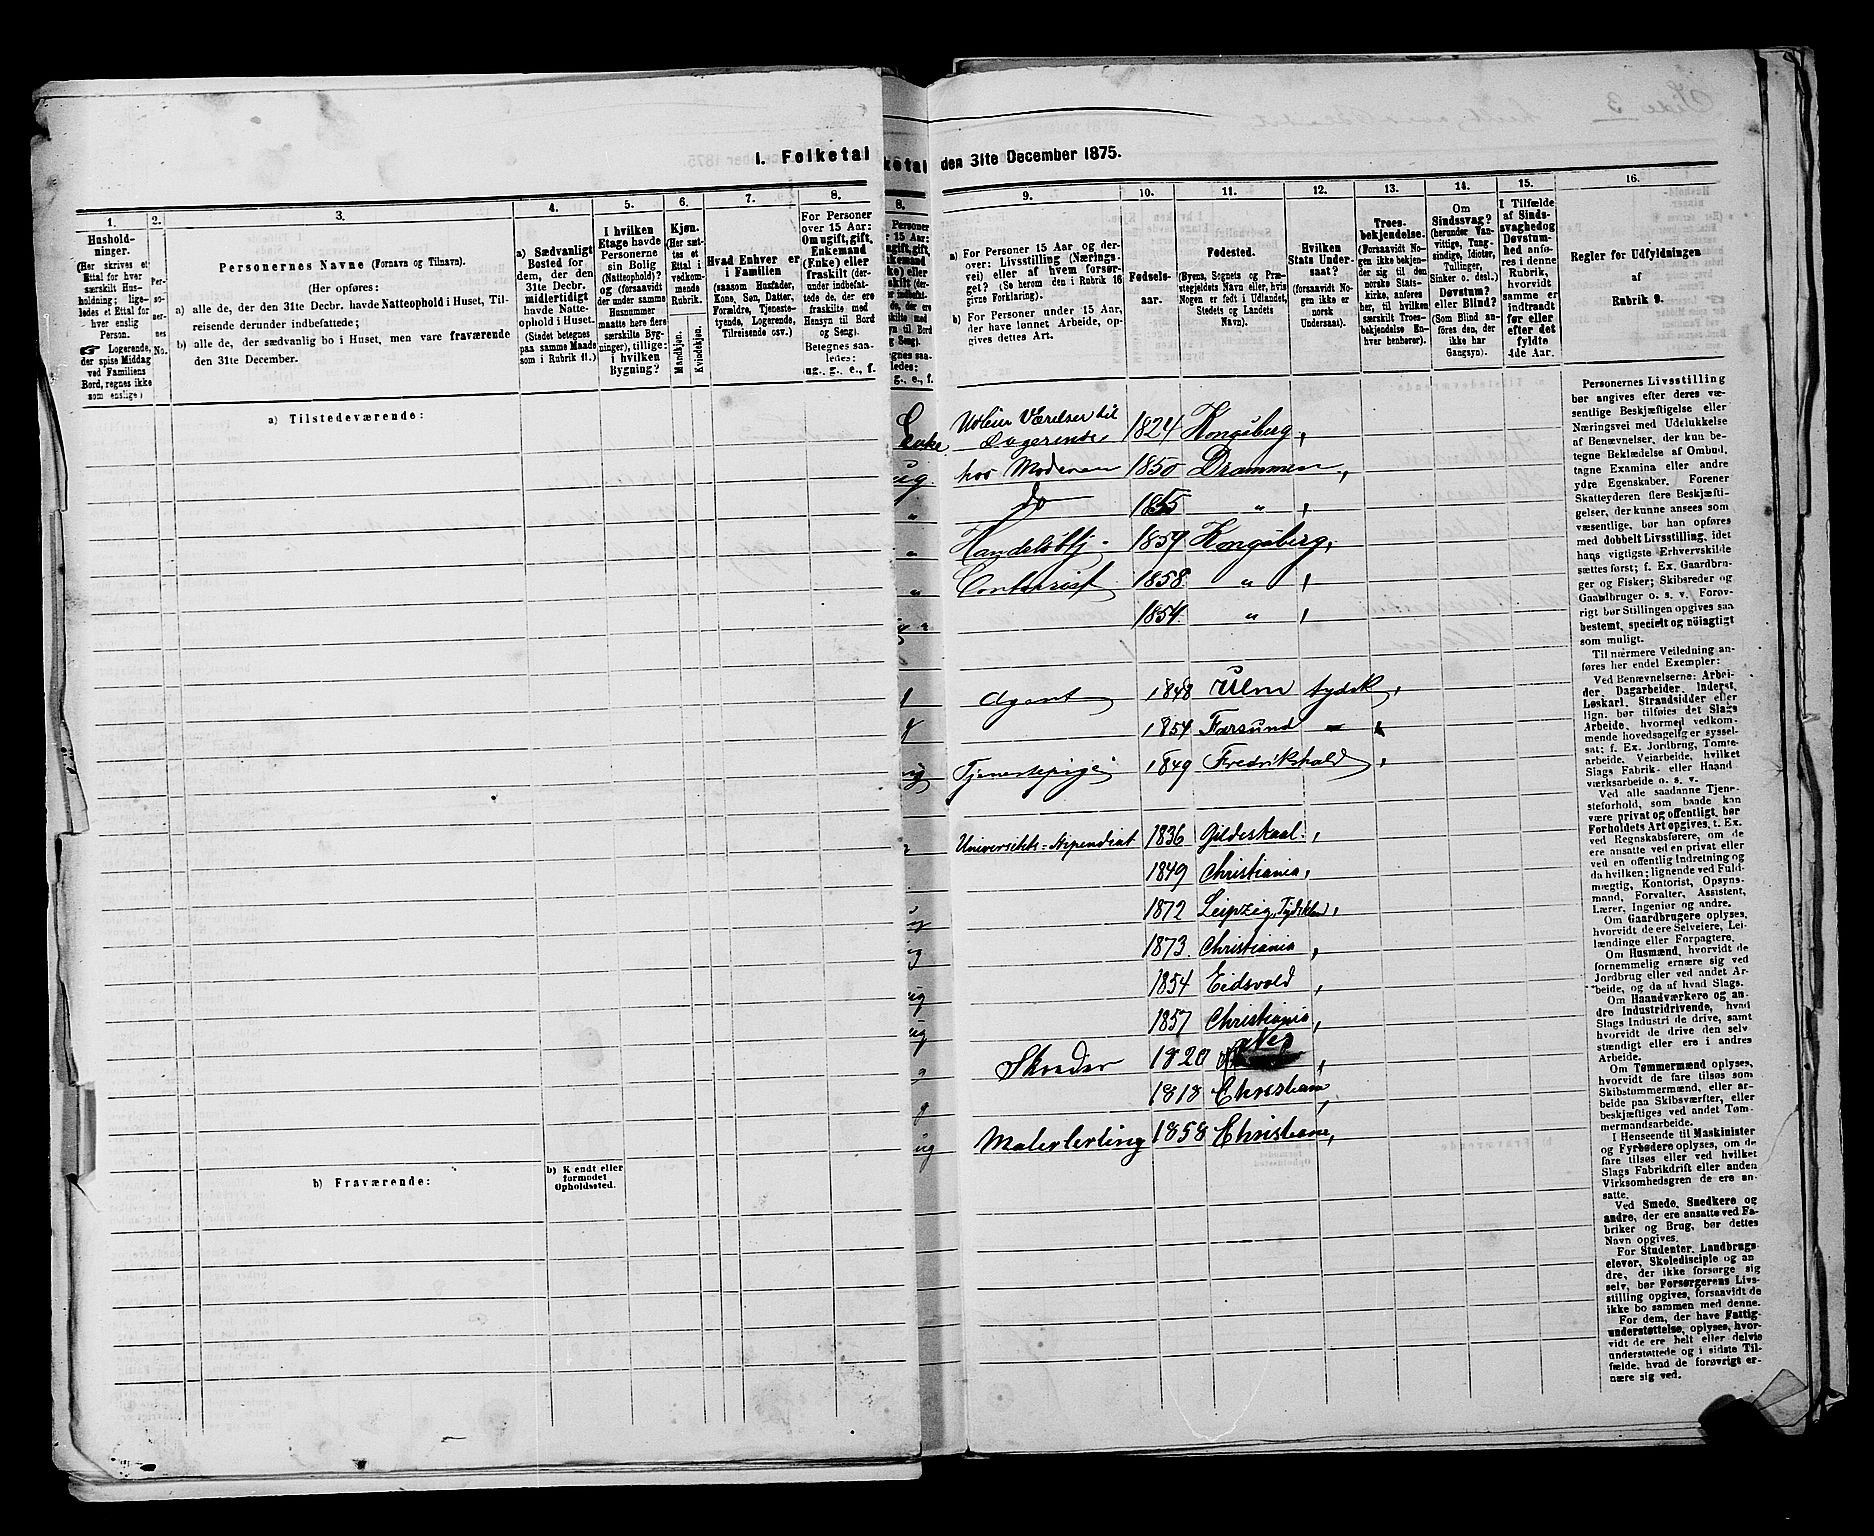 1. Folketal
ketal
den 31te December 1875.
1.
Hushold-
ninger.
(Her skrives et
Ettal for hver
særskilt Hus-
holdning; lige-
ledes et Ettal for
hver enslig
Person.
☞ Logerende,
der spise Middag
ved Familiens
Bord, regnes ikke
som enslige)
2.
Per-
so-
nes
No.
3.
Personernes Navne (Fornavn og Tilnavn).
(Her opføres:
a) alle de, der den 31te Decbr. havde Natteophold i Huset, Til-
reisende derunder indbefattede;
b) alle de, der sædvanlig bo i Huset, men vare fraværende
den 31te December.
4.
a) Sædvanligt
Bosted for
dem, der den
31te Decbr.
midlertidigt
havde Natte-
ophold i Huset.
(Stedet betegnes
paa samme Maade
som i Rubrik 11.)
5.
I hvilken
Etage havde
Personerne
sin Bolig
(Natteophold)?
og (forsaavidt
der under samme
Husnummer
maatte høre flere
særskilte Byg-
ninger), tillige:
i hvilken
Bygning?
6.
Kjøn.
(Her sæt-
tes et
Ettal i
vedkom-
mende
Rubrik.
Mandkjøn.
Kvindekjøn.
7.
Hvad Enhver er
i Familien
(saasom Husfader,
Kone, Søn, Datter,
Forældre, Tjeneste-
tyende, Logerende,
Tilreisende osv.)
8.
For Personer
over 15 Aar:
Om ugift, gift,
Enkemand
(Enke) eller
fraskilt (der-
under indbefat-
tede de, der ere
fraskilte med
Hensyn til Bord
og Seng).
Betegnes saa-
ledes:
ug., g., e., f.
8.
9.
a) For Personer 15 Aar og der-
over: Livsstilling (Nærings-
vei) eller af hvem forsør-
get? (Se herom den i Rubrik 16
givne Forklaring).
b) For Personer under 15 Aar,
der have lønnet Arbeide, op-
gives dettes Art.
10.
Fødsels-
aar.
11.
Fødested.
(Byens, Sognets og Præ-
stegjeldets Navn eller, hvis
Nogen er født i Udlandet,
Stedets og Landets
Navn).
12.
Hvilken
Stats Under-
saat?
(forsaavidt No-
gen ikke er
norsk
Undersaat).
13.
Troes-
bekjendelse.
(Forsaavidt No-
gen ikke bekjen-
der sig til den
norske Stats-
kirke, anføres
her, til hvilken
særskilt Troes-
bekjendelse En-
hver henhører).
14.
Om
Sindssvag?
(herunder Van-
vittige, Tung-
sindige, Idioter,
Tullinger,
Sinker o. desl.)
Døvstum?
eller Blind?
(Som Blind an-
føres den, der
ikke har
Gangsyn).
15.
I Tilfælde
af Sinds-
svaghed og
Døvstum-
hed anfø-
res i denne
Rubrik,
hvorvidt
samme er
indtraadt
før eller
efter det
fyldte
4de Aar.
16.
Regler for Udfyldningen
af
Rubrik 9.
a) Tilstedeværende:
Enke Udleier Værelser til
Logerende 1824 Kongsberg,
ug. hos Moderen 1850 Drammen,
" do 1855 " ,
" Handelsbtj - 1859 Kongsberg,
" Contorist 1858 " ,
1854 " ,
Agent 1848 Ulm tydsk,
g 1854 Farsund
ug Tjenestepige 1849 Fredrikshald,
Universitets-Stipendiat 1836 Gildeskaal,
1849 Christiania,
ug 1872 Leipzig, Tydskland,
ug 1873 Christiania,
ug 1854 Eidsvold,
ug 1857 Christiania,
Skreder 1820 Næs,
g 1818 Christiania,
ug Malerlerling 1858 Christiania,
b) Fraværende:
b) Kjendt eller
formodet
Opholdssted.
Personernes Livsstilling
bør angives efter deres væ-
sentlige Beskjæftigelse eller
Næringsvei med Udelukkelse
af Benævnelser, der kun be-
tegne Beklædelse af Ombud,
tagne Examina eller andre
ydre Egenskaber. Forener
Skatteyderen flere Beskjæfti-
gelser, der kunne ansees som
væsentlige, bør han opføres
med dobbelt Livsstilling, idet
hans vigtigste Erhvervskilde
sættes først; f. Ex. Gaardbru-
ger og Fisker; Skibsreder og
Gaardbruger o. s. v. Forøv-
rigt bør Stillingen opgives saa
bestemt, specielt og nöiagtigt
som muligt.
Til nærmere Veiledning an-
føres her endel Exempler:
Ved Benævnelserne: Arbei-
der, Dagarbeider, Inderst,
Løskarl, Strandsidder eller
lign. bør tilføies det Slags
Arbeide, hvormed vedkom-
mende hovedsagelig er syssel-
sat; f. Ex. Jordbrug, Tomte-
arbeide, Veiarbeide, hvilket
Slags Fabrik- eller Haand-
værksarbeide o. s. v.
Ved alle saadanne Tjene-
steforhold, som baade kan
være privat og offentligt, bør
Forholdets Art opgives, f. Ex.
ved Regnskabsførere, om de
ere ansatte ved en privat eller
ved en offentlig Indretning og
da hvilken; lignende ved Fuld-
mægtig, Kontorist, Opsyns-
mand, Forvalter, Assistent,
Lærer, Ingeniør og andre.
Om Gaardbrugere oplyses,
hvorvidt de ere Selveiere, Lei-
lændinge eller Forpagtere.
Om Husmænd, hvorvidt de
fornemmelig ernære sig ved
Jordbrug eller ved andet Ar-
beide, og da af hvad Slags.
Om Haandværkere og an-
dre Industridrivende, hvad
Slags Industri de drive, samt
hvorvidt de drive den selv-
stændigt eller ere i andres
Arbeide.
Om Tømmermænd oplyses,
hvorvidt de fare tilsøs som
Skibstømmermænd, eller ar-
beide paa Skibsværfter, eller
beskjæftiges ved andet Tøm-
mermandsarbeide.
I Henseende til Maskinister
og Fyrbødere oplyses, om de
fare tilsøs eller ved hvilket
Slags Fabrikdrift eller anden
Virksomhedsgren de ere an-
satte.
Ved Smede, Snedkere og
andre, der ere ansatte ved Fa-
briker og Brug, bør dettes
Navn opgives.
For Studenter, Landbrugs-
elever, Skoledisciple og an-
dre, der ikke forsørge sig
selv, bør Forsørgerens Livs-
stilling opgives, forsaavidt de
ikke bo sammen med denne.
For dem, der have Fattig-
understøttelse, oplyses, hvor-
vidt de ere helt eller delvis
understøttede og i sidste Til-
fælde, hvad de forøvrigt er-
nære sig ved.